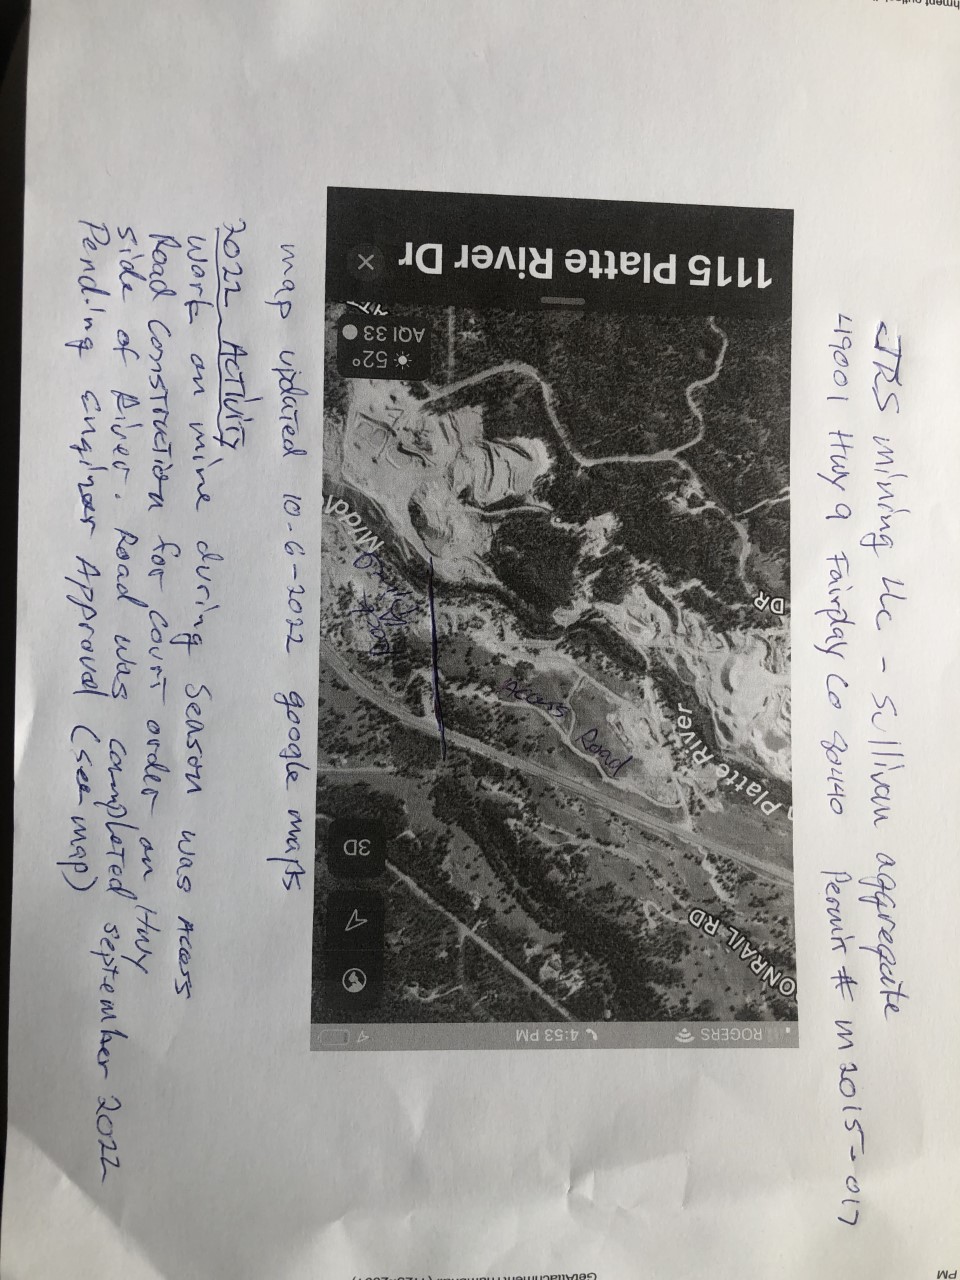 JRS mining llc - Sullivan aggregate
41900 Hwy 9 Fairday Co 80440 Permit # M2015-017
ROGERS 4:53 PM
ONRAIL RD
Platte River
DR
Middl
Access Road
3D
52°
AQI 33
1115 Platte River Dr
map updated 10-6-2022 google maps
2022 Activity
Work on mine during Season was Access
Road Construction for Court order on Hwy
side of River. Road was completed september 2022
Pending Enginer Approval (see map)